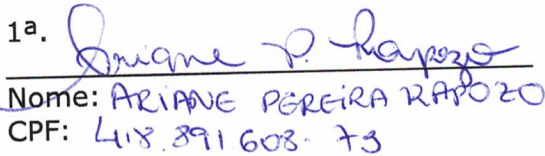 1ª. Ariane P. Rapozo
Nome: ARIANE PEREIRA RAPOZO
CPF: 418.891608-79